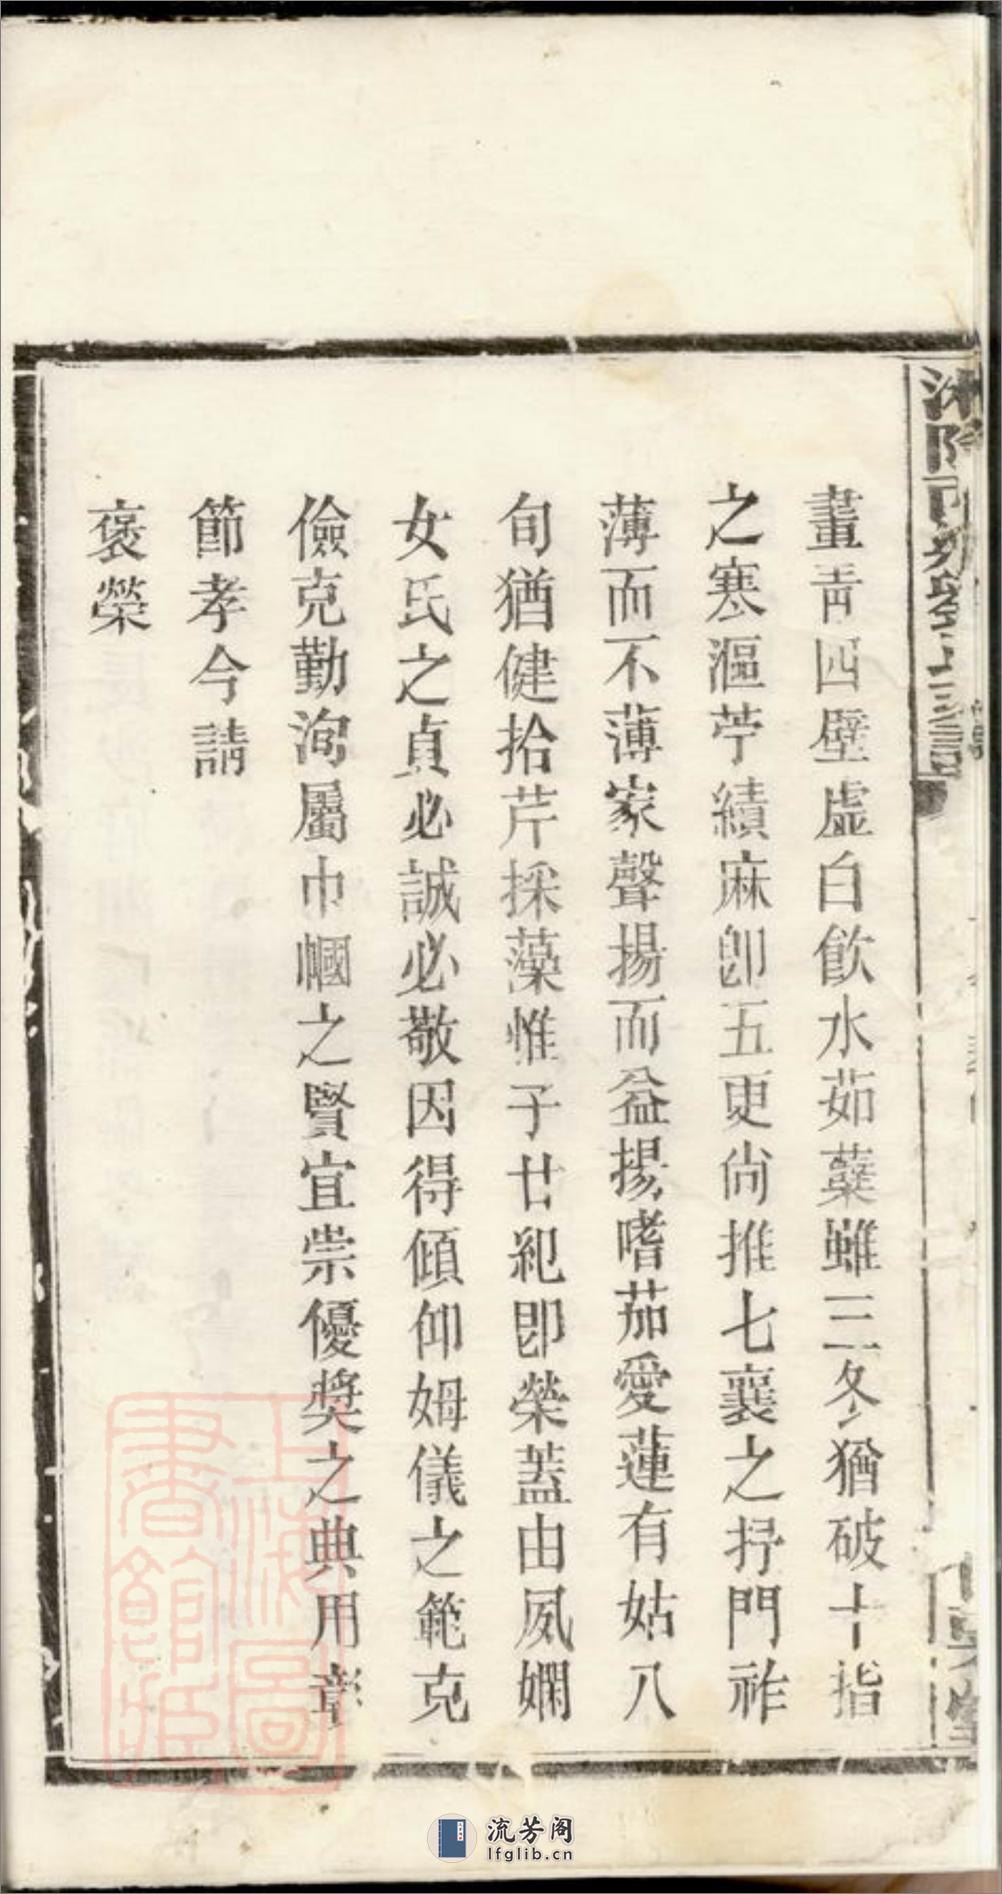 畫青四壁虛白飲水茹蘗雖三冬猶破十指
之寒漚苧績麻卽五更尙推七襄之抒門祚
薄而不薄家聲揚而益揚嗜茄愛蓮有姑八
旬猶健拾芹採藻惟子廿紀卽榮蓋由夙嫻
女氏之貞必誠必敬因得傾仰姆儀之範克
儉克勤洵屬巾幗之賢宜崇優獎之典用彰
節孝今請
褒榮
上海圖
書館藏
流芳阁
lfglib.cn